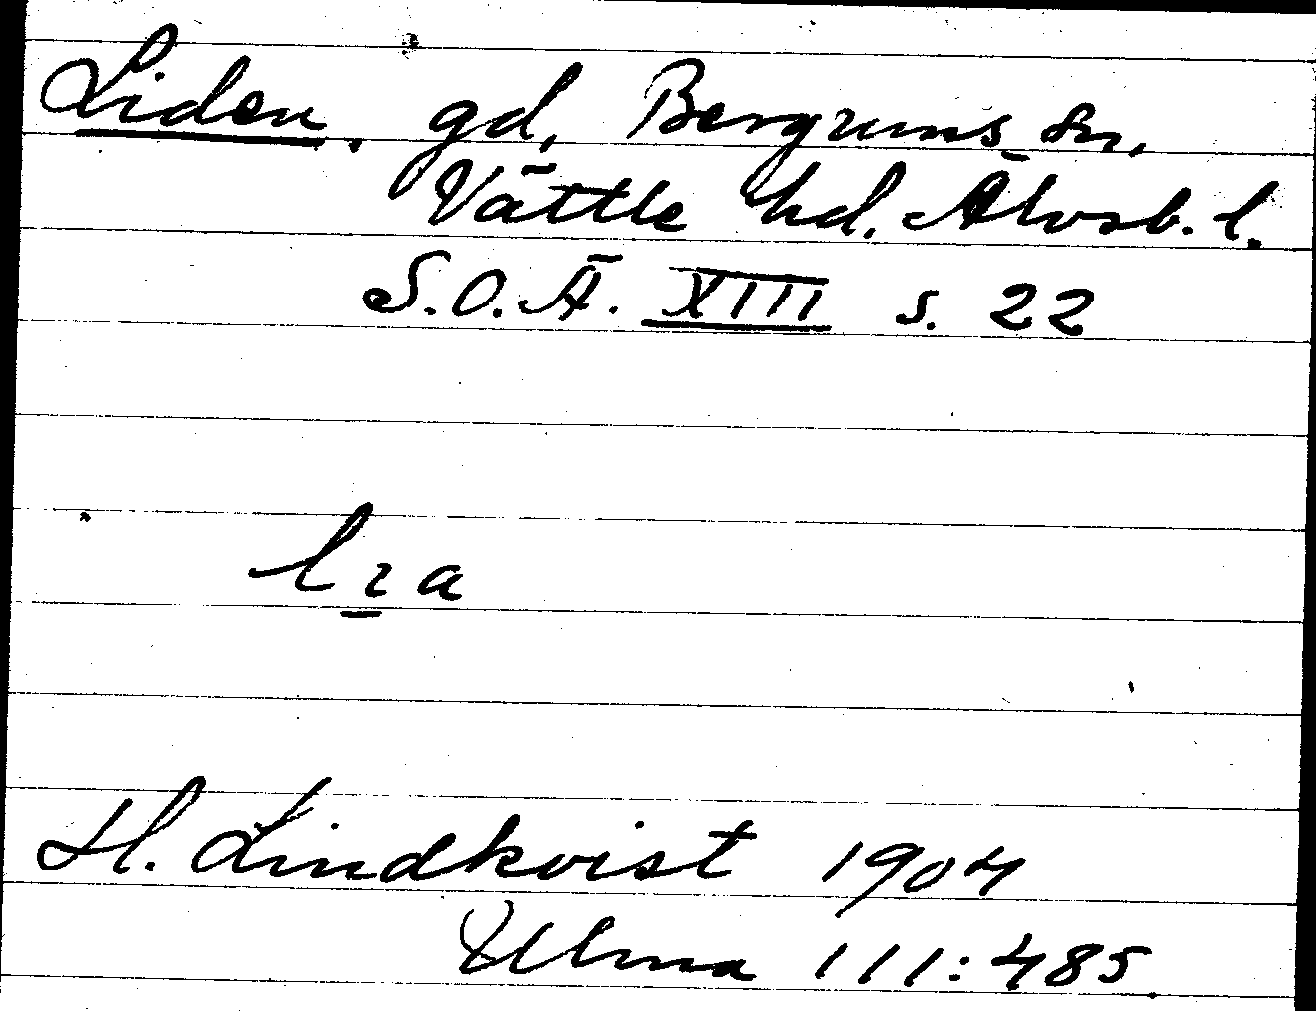 Liden, gd, Bergums sn,
Vättle hd. Älvsb. l.
S.O.Ä. XIII s. 22
lɿa
H. Lindkvist 1904
Ulma 111:485.